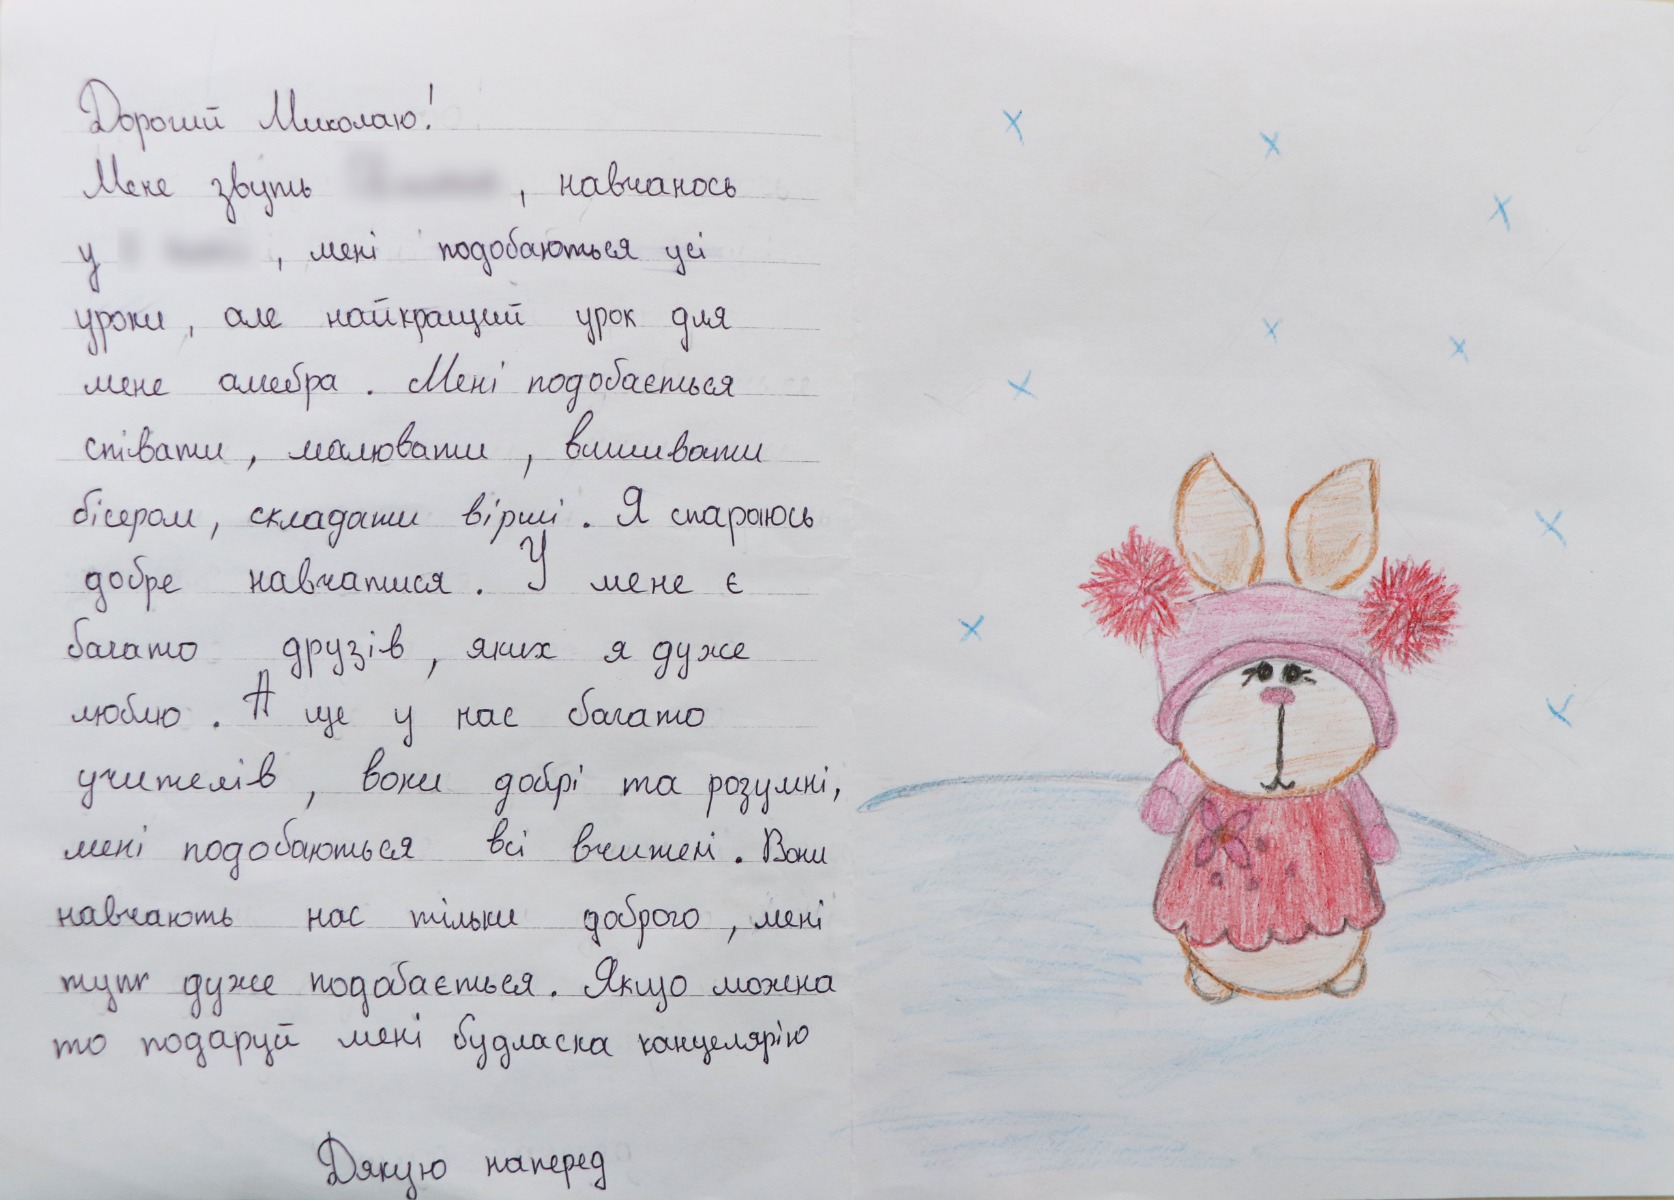 Дорогий Миколаю!
Мене звуть , навчаюсь
у , мені подобаються усі
уроки, але найкращий урок для
мене алгебра. Мені подобається
співати, малювати, вишивати
бісером, складати вірші. Я стараюсь
добре навчатися. У мене є
багато друзів, яких я дуже
люблю. А ще у нас багато
учителів, вони добрі та розумні,
мені подобаються всі вчителі. Вони
навчають нас тільки доброго, мені
тут дуже подобається. Якщо можна
то подаруй мені будласка канцелярію
Дякую наперед